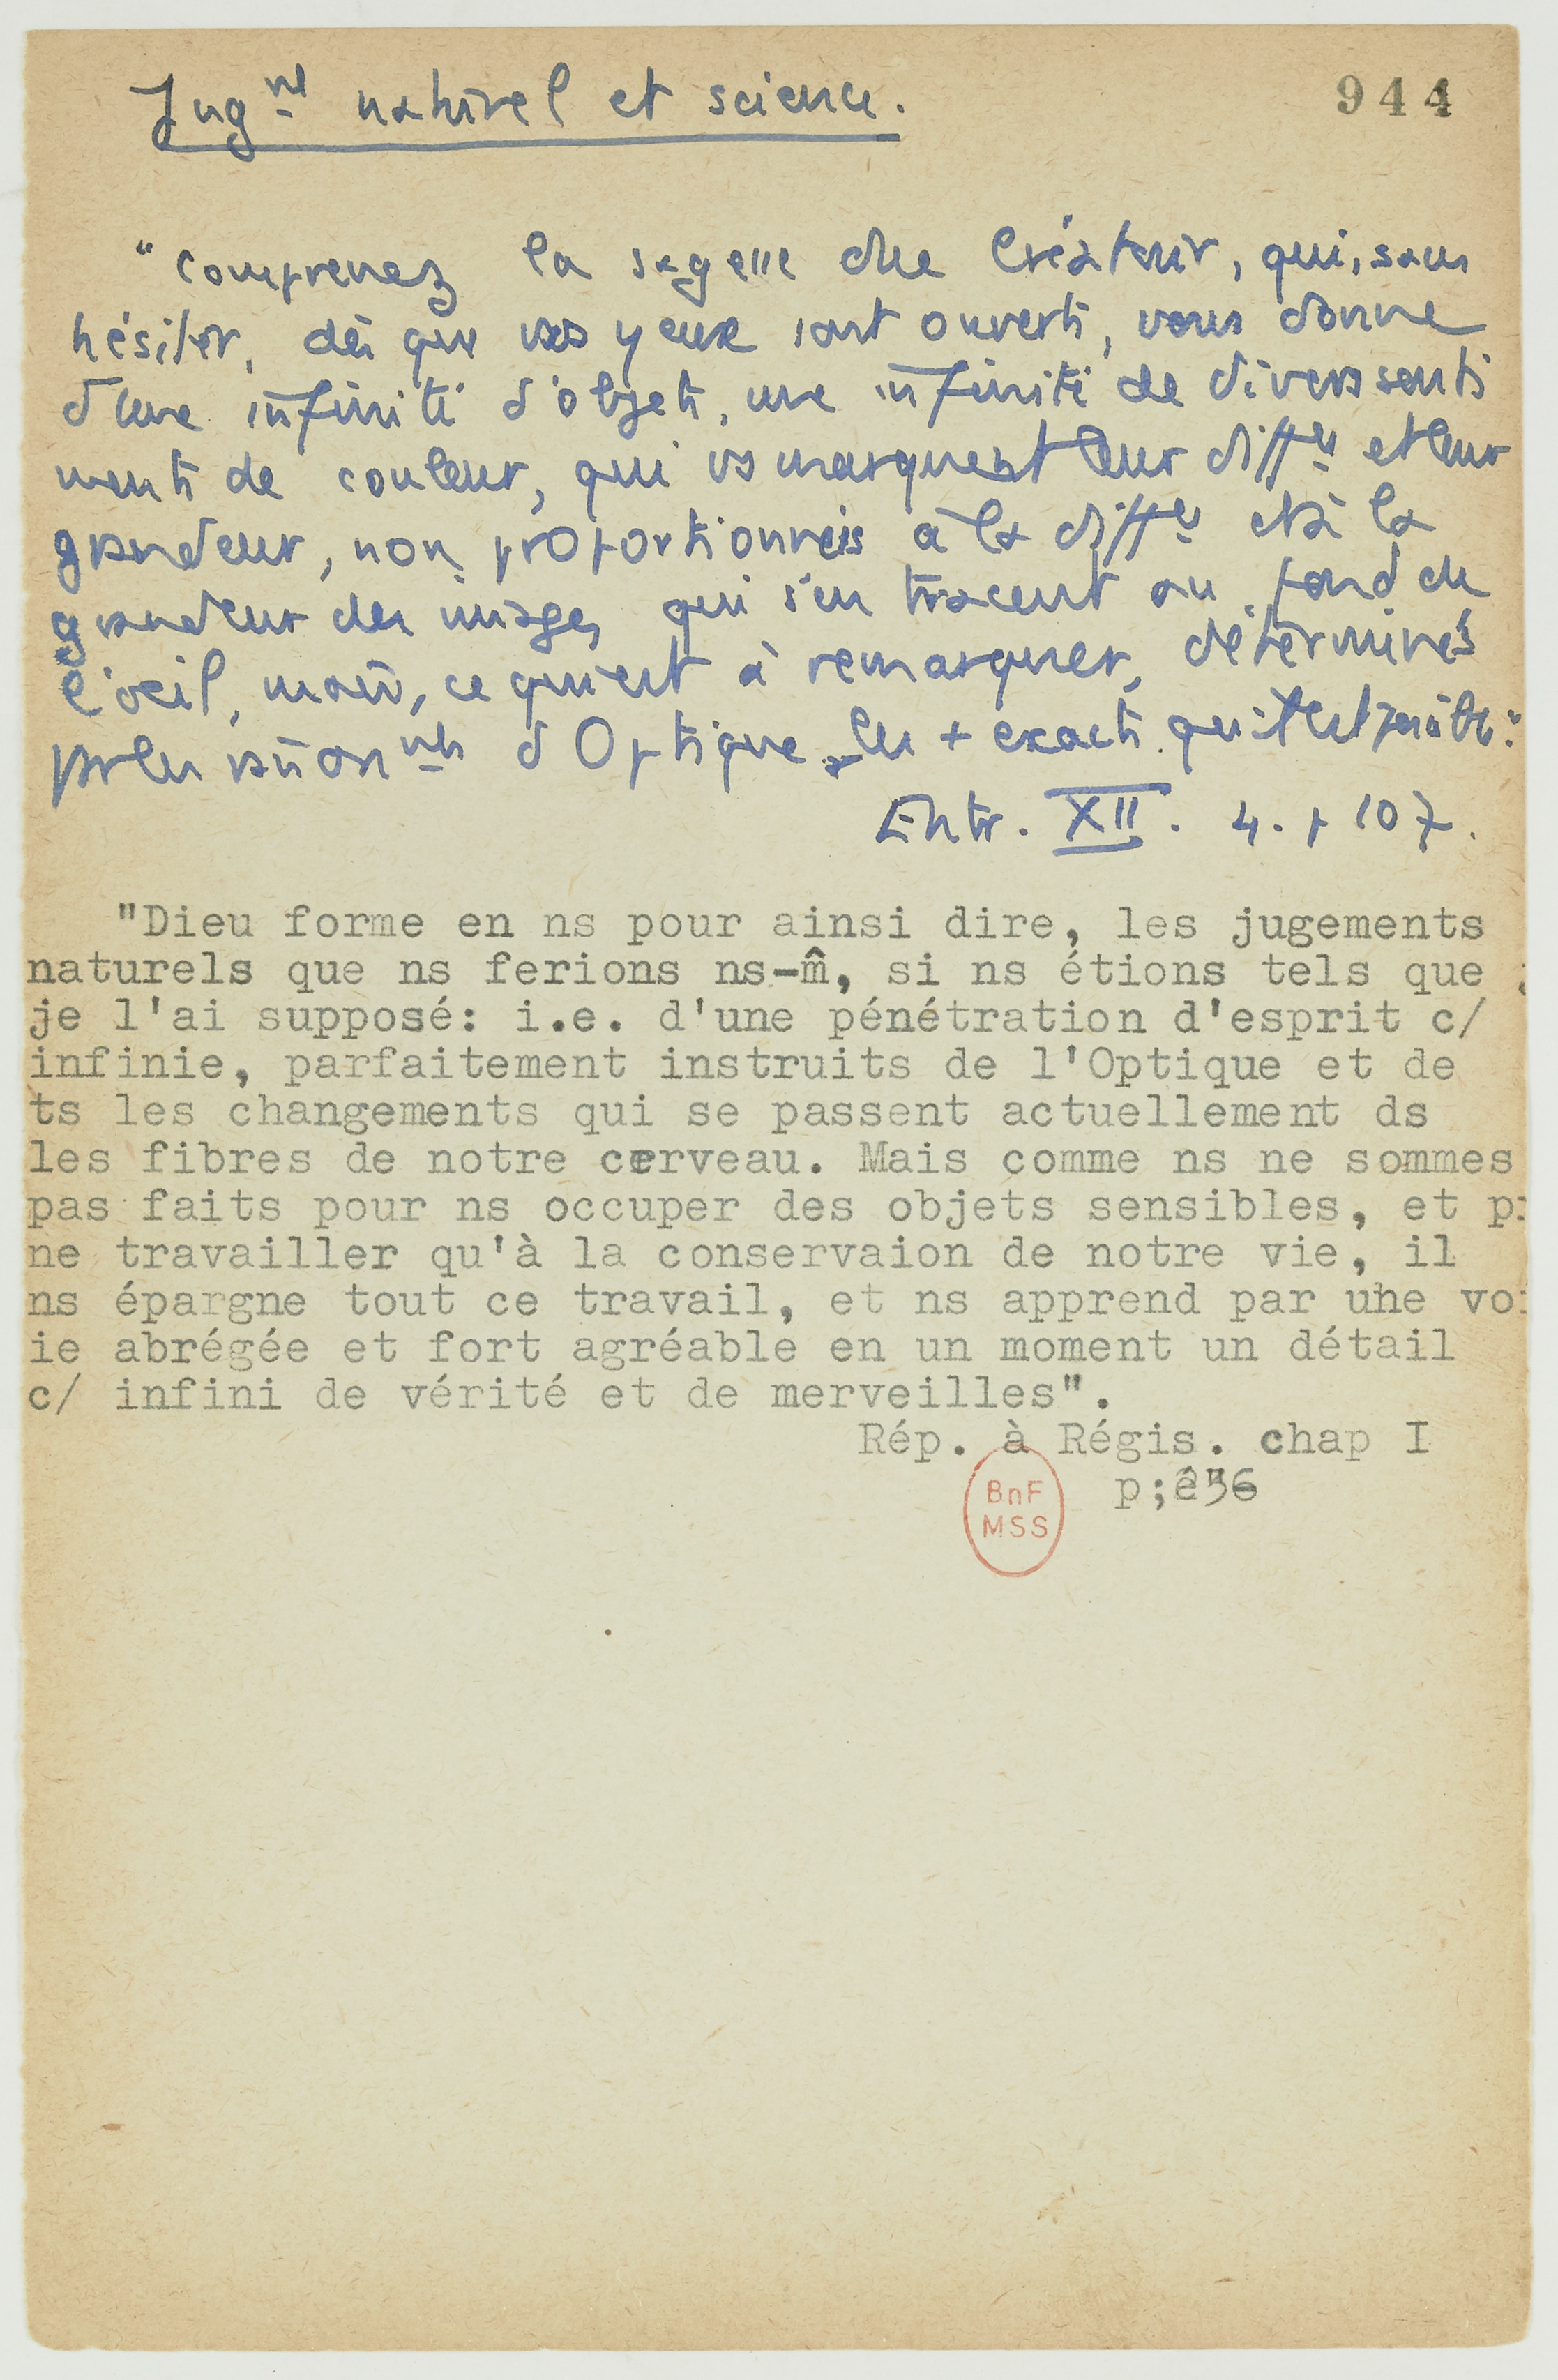 Jug.nt naturel et science.
944
"Comprenez la sagesse du Créateur, qui, sans
hésiter, dès que vos yeux sont ouverts, vous donne
d'une infinité d'objets, une infinité de divers senti
ments de couleur, qui vs marquent leur diff.ces et leur
grandeur, non proportionnés à la diff.ces et à la
grandeur des images qui s'en tracent au fond de
l'oeil, mais, ce qui est à remarquer, déterminés
par les raisonnts d'Optique les + exacts qu'il est possible."
Entr. XII. 4. p 107.
"Dieu forme en ns pour ainsi dire, les jugements
naturels que ns ferions ns-m̂, si ns étions tels que
je l'ai supposé: i.e. d'une pénétration d'esprit c/
infinie, parfaitement instruits de l'Optique et de
ts les changements qui se passent actuellement ds
les fibres de notre cerveau. Mais comme ns ne sommes
pas faits pour ns occuper des objets sensibles, et pr
ne travailler qu'à la conservaion de notre vie, il
ns épargne tout ce travail, et ns apprend par une voi
ie abrégée et fort agréable en un moment un détail
c/ infini de vérité et de merveilles".
Rép. à Régis. chap I
p;
BnF
MSS